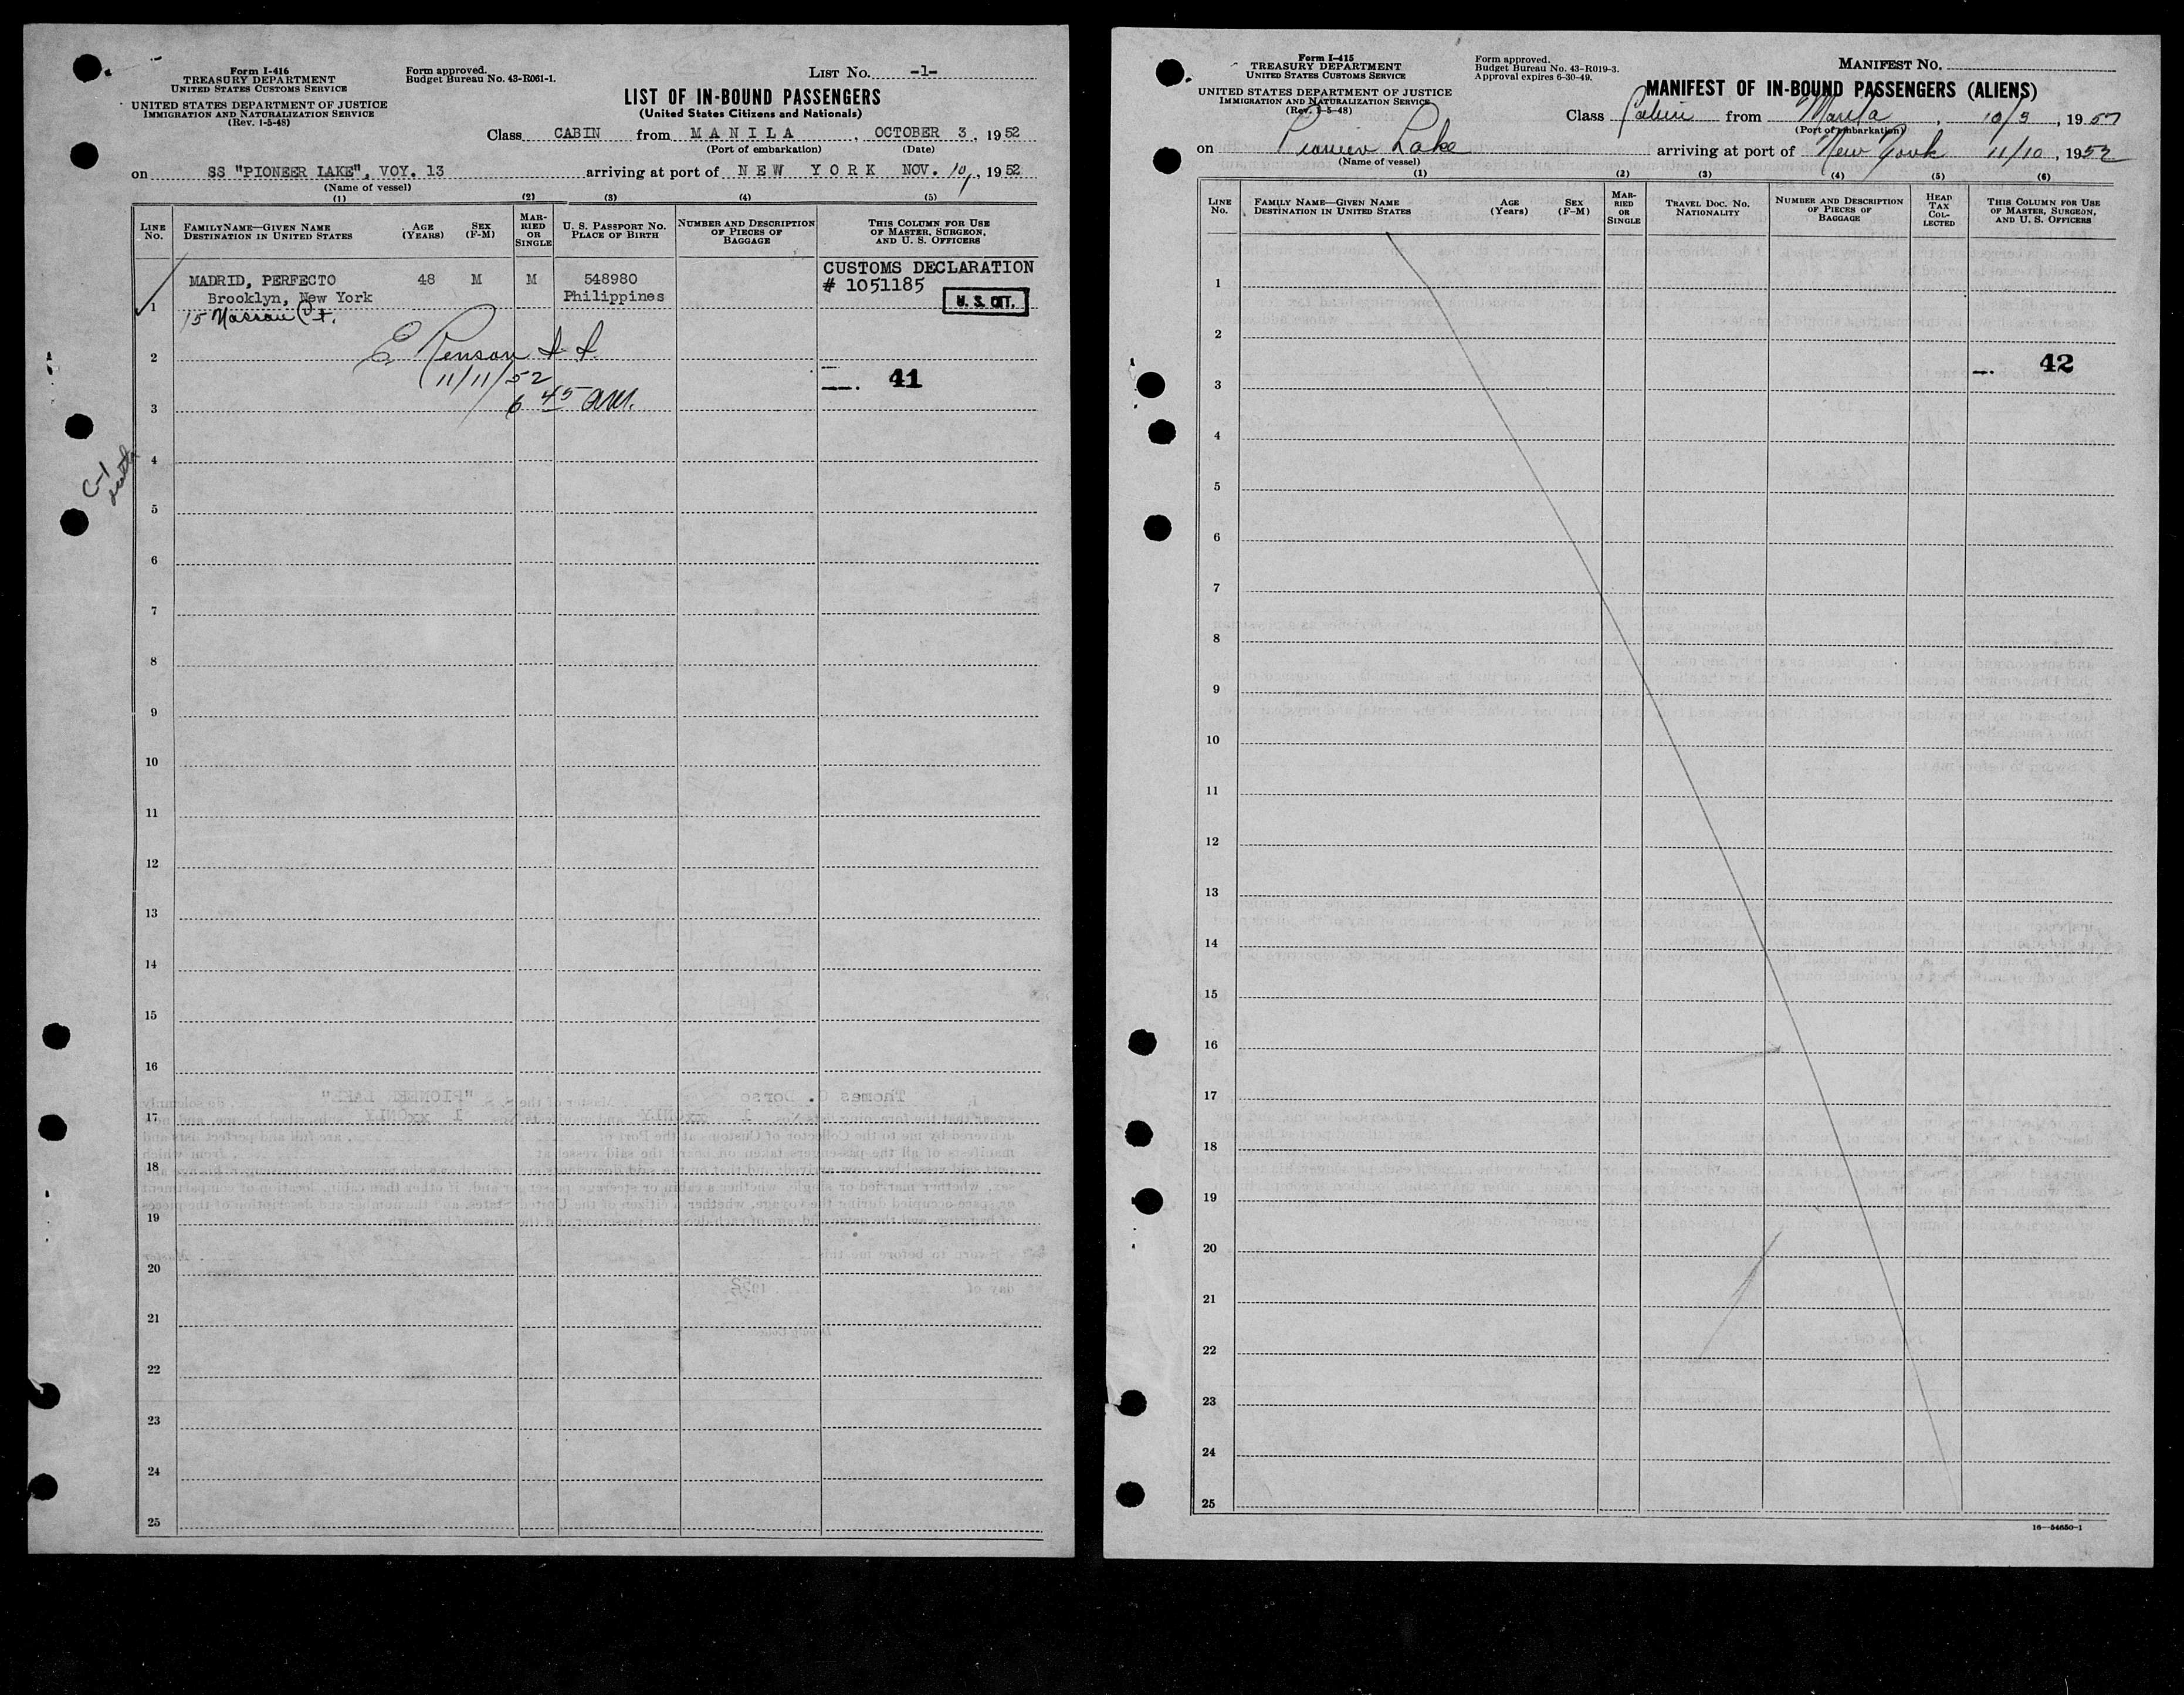 Form I-416
TREASURY DEPARTMENT
UNITED STATES CUSTOMS SERVICE
UNITED STATES DEPARTMENT OF JUSTICE
IMMIGRATION AND NATURALIZATION SERVICE
(Rev. 1-5-48)
Form approved.
Budget Bureau No. 43-R061-1.
LIST NO. -1-
LIST OF IN-BOUND PASSENGERS
(United States Citizens and Nationals)
Class CABIN from MANILA, OCTOBER 3, 1952
(Port of embarkation) (Date)
on SS "PIONEER LAKE", VOY. 13 arriving at port of NEW YORK NOV. 10, 1952
(Name of vessel)
(1) (2) (3) (4) (5)
LINE NO.
FAMILY NAME—GIVEN NAME
DESTINATION IN UNITED STATES
AGE (YEARS)
SEX (F-M)
MARRIED OR SINGLE
U. S. PASSPORT NO.
PLACE OF BIRTH
NUMBER AND DESCRIPTION OF PIECES OF BAGGAGE
THIS COLUMN FOR USE OF MASTER, SURGEON, AND U. S. OFFICERS
MADRID, PERFECTO 48 M M 548980 CUSTOMS DECLARATION
Brooklyn, New York Philippines # 1051185
1 15 Nassau Ct. U. S. CIT.
2 E Renson
11/11/52 41
3 6 45 AM.
4
C-1
5
6
7
8
9
10
11
12
13
14
15
16
17
18
19
20
21
22
23
24
25
Form I-415
TREASURY DEPARTMENT
UNITED STATES CUSTOMS SERVICE
UNITED STATES DEPARTMENT OF JUSTICE
IMMIGRATION AND NATURALIZATION SERVICE
(Rev. 1-5-48)
Form approved.
Budget Bureau No. 43-R019-3.
Approval expires 6-30-49.
MANIFEST NO.
MANIFEST OF IN-BOUND PASSENGERS (ALIENS)
Class Cabin from Manila, 10/3, 1952
(Port of embarkation)
on Pioneer Lake arriving at port of New York 11/10, 1952
(Name of vessel)
(1) (2) (3) (4) (5) (6)
LINE NO.
FAMILY NAME—GIVEN NAME
DESTINATION IN UNITED STATES
AGE (Years)
SEX (F-M)
MARRIED OR SINGLE
TRAVEL DOC. NO.
NATIONALITY
NUMBER AND DESCRIPTION OF PIECES OF BAGGAGE
HEAD TAX COLLECTED
THIS COLUMN FOR USE OF MASTER, SURGEON, AND U. S. OFFICERS
1
2
42
3
4
5
6
7
8
9
10
11
12
13
14
15
16
17
18
19
20
21
22
23
24
25
16—54650-1